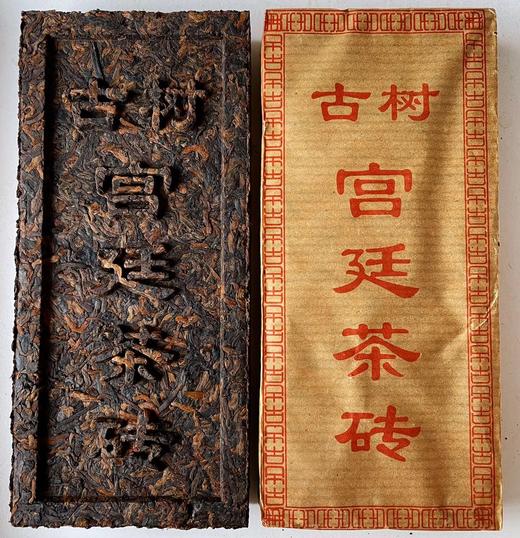 古树
宫廷茶砖
古树
宫廷茶砖